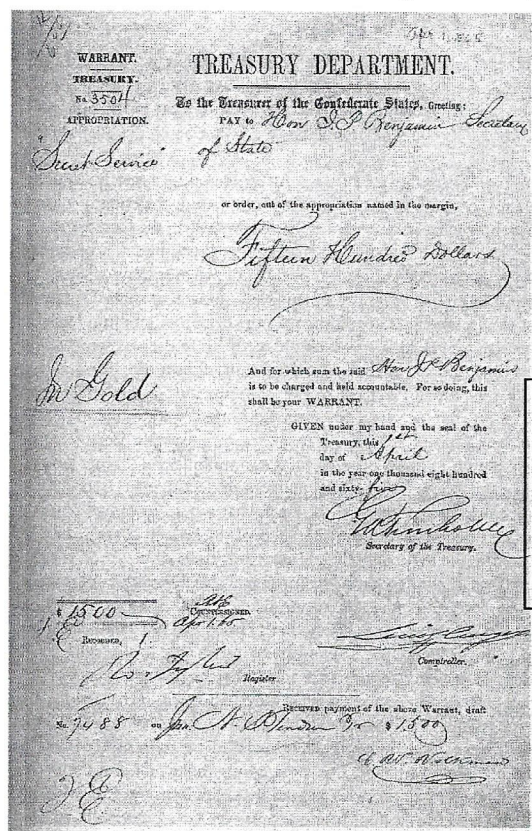 Apr 1, 1865
WARRANT.
TREASURY DEPARTMENT.
TREASURY.
No. 3504
APPROPRIATION.
To the Treasurer of the Confederate States, Greeting:
PAY to Hon J. P. Benjamin Secretary
of State
"Secret Service
or order, out of the appropriation named in the margin,
Fifteen Hundred Dollars
In Gold
And for which sum the said Hon J P Benjamin
is to be charged and held accountable. For so doing, this
shall be your WARRANT.
GIVEN under my hand and the seal of the
Treasury, this 1st
day of April
in the year one thousand eight hundred
and sixty-five
Secretary of the Treasury.
$ 1500
COUNTERSIGNED,
Apr 1. 65
RECORDED,
Comptroller.
Register
RECEIVED payment of the above Warrant, draft
No. 7488 on Jno. N. $ 1500